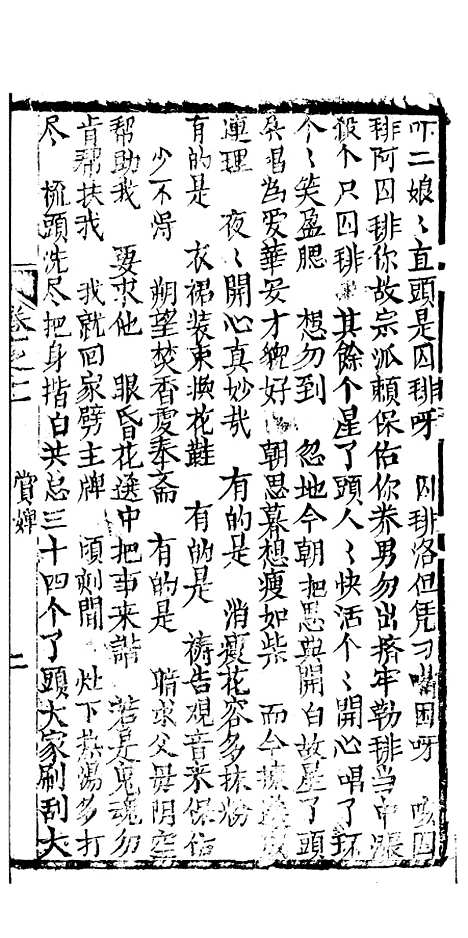 吓二娘〻直頭是囚琲呀　囚琲洛但凭刁嘴囚呀　咳囚
琲阿囚琲你故宗派頼保佑你养男勿出擠牢勒琲当中漲
殺个只囚琲　其餘个星了頭人〻快活个〻開心唱了
个〻笑盈腮　想勿到　忽地今朝把恩典開　白故星了頭
為愛華安才貌好　朝思暮想瘦如柴　而今
連理　夜〻開心真妙哉　有的是　消瘦花容多抹粉
有的是　衣裙装束換花鞋　有的是　祷告观音来保佑
少不得　朔望焚香虔奉斋　有的是　暗求父母阴空
帮助我　要求他　眼昏花选中把事来諧　若是鬼魂勿
肯帮扶我　我就回家劈主牌　頃刻間　灶下热湯多打
尽　梳頭洗尽把身揩　白共总三十四个了頭大家刷刮大
卷之二
賞婢
二